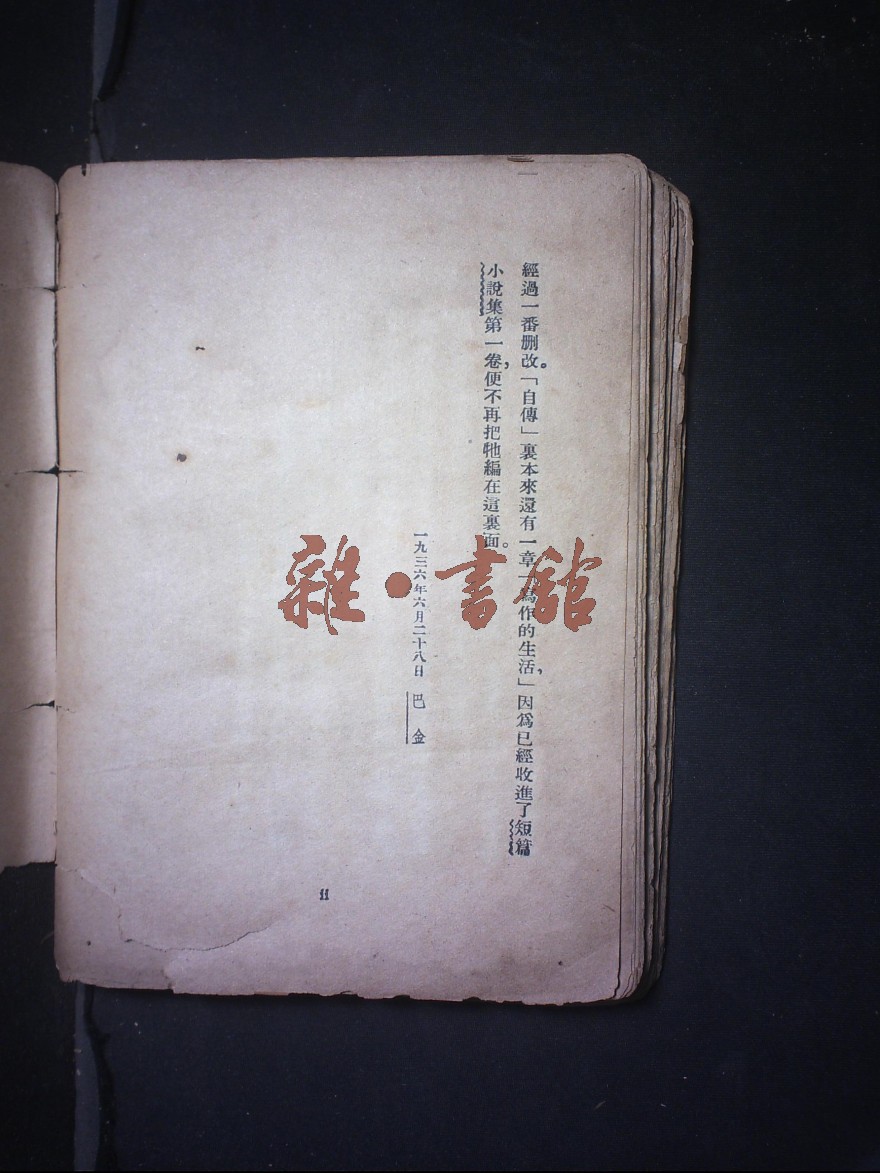 經過一番删改。「自傳」裏本來還有一章「寫作的生活，」因爲已經收進了短篇
小說集第一卷，便不再把牠編在這裏面。
一九三六年六月二十八日 巴金
11
雜·書館